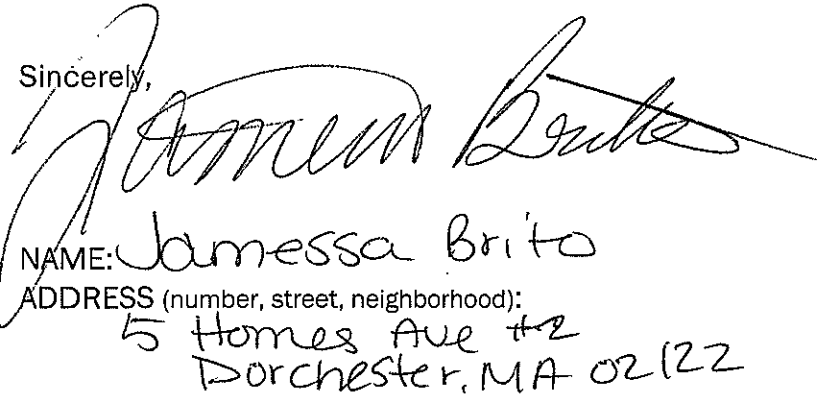 Sincerely,
Jamessa Brito
NAME: Jamessa Brito
ADDRESS (number, street, neighborhood):
5 Homes Ave #2
Dorchester, MA 02122